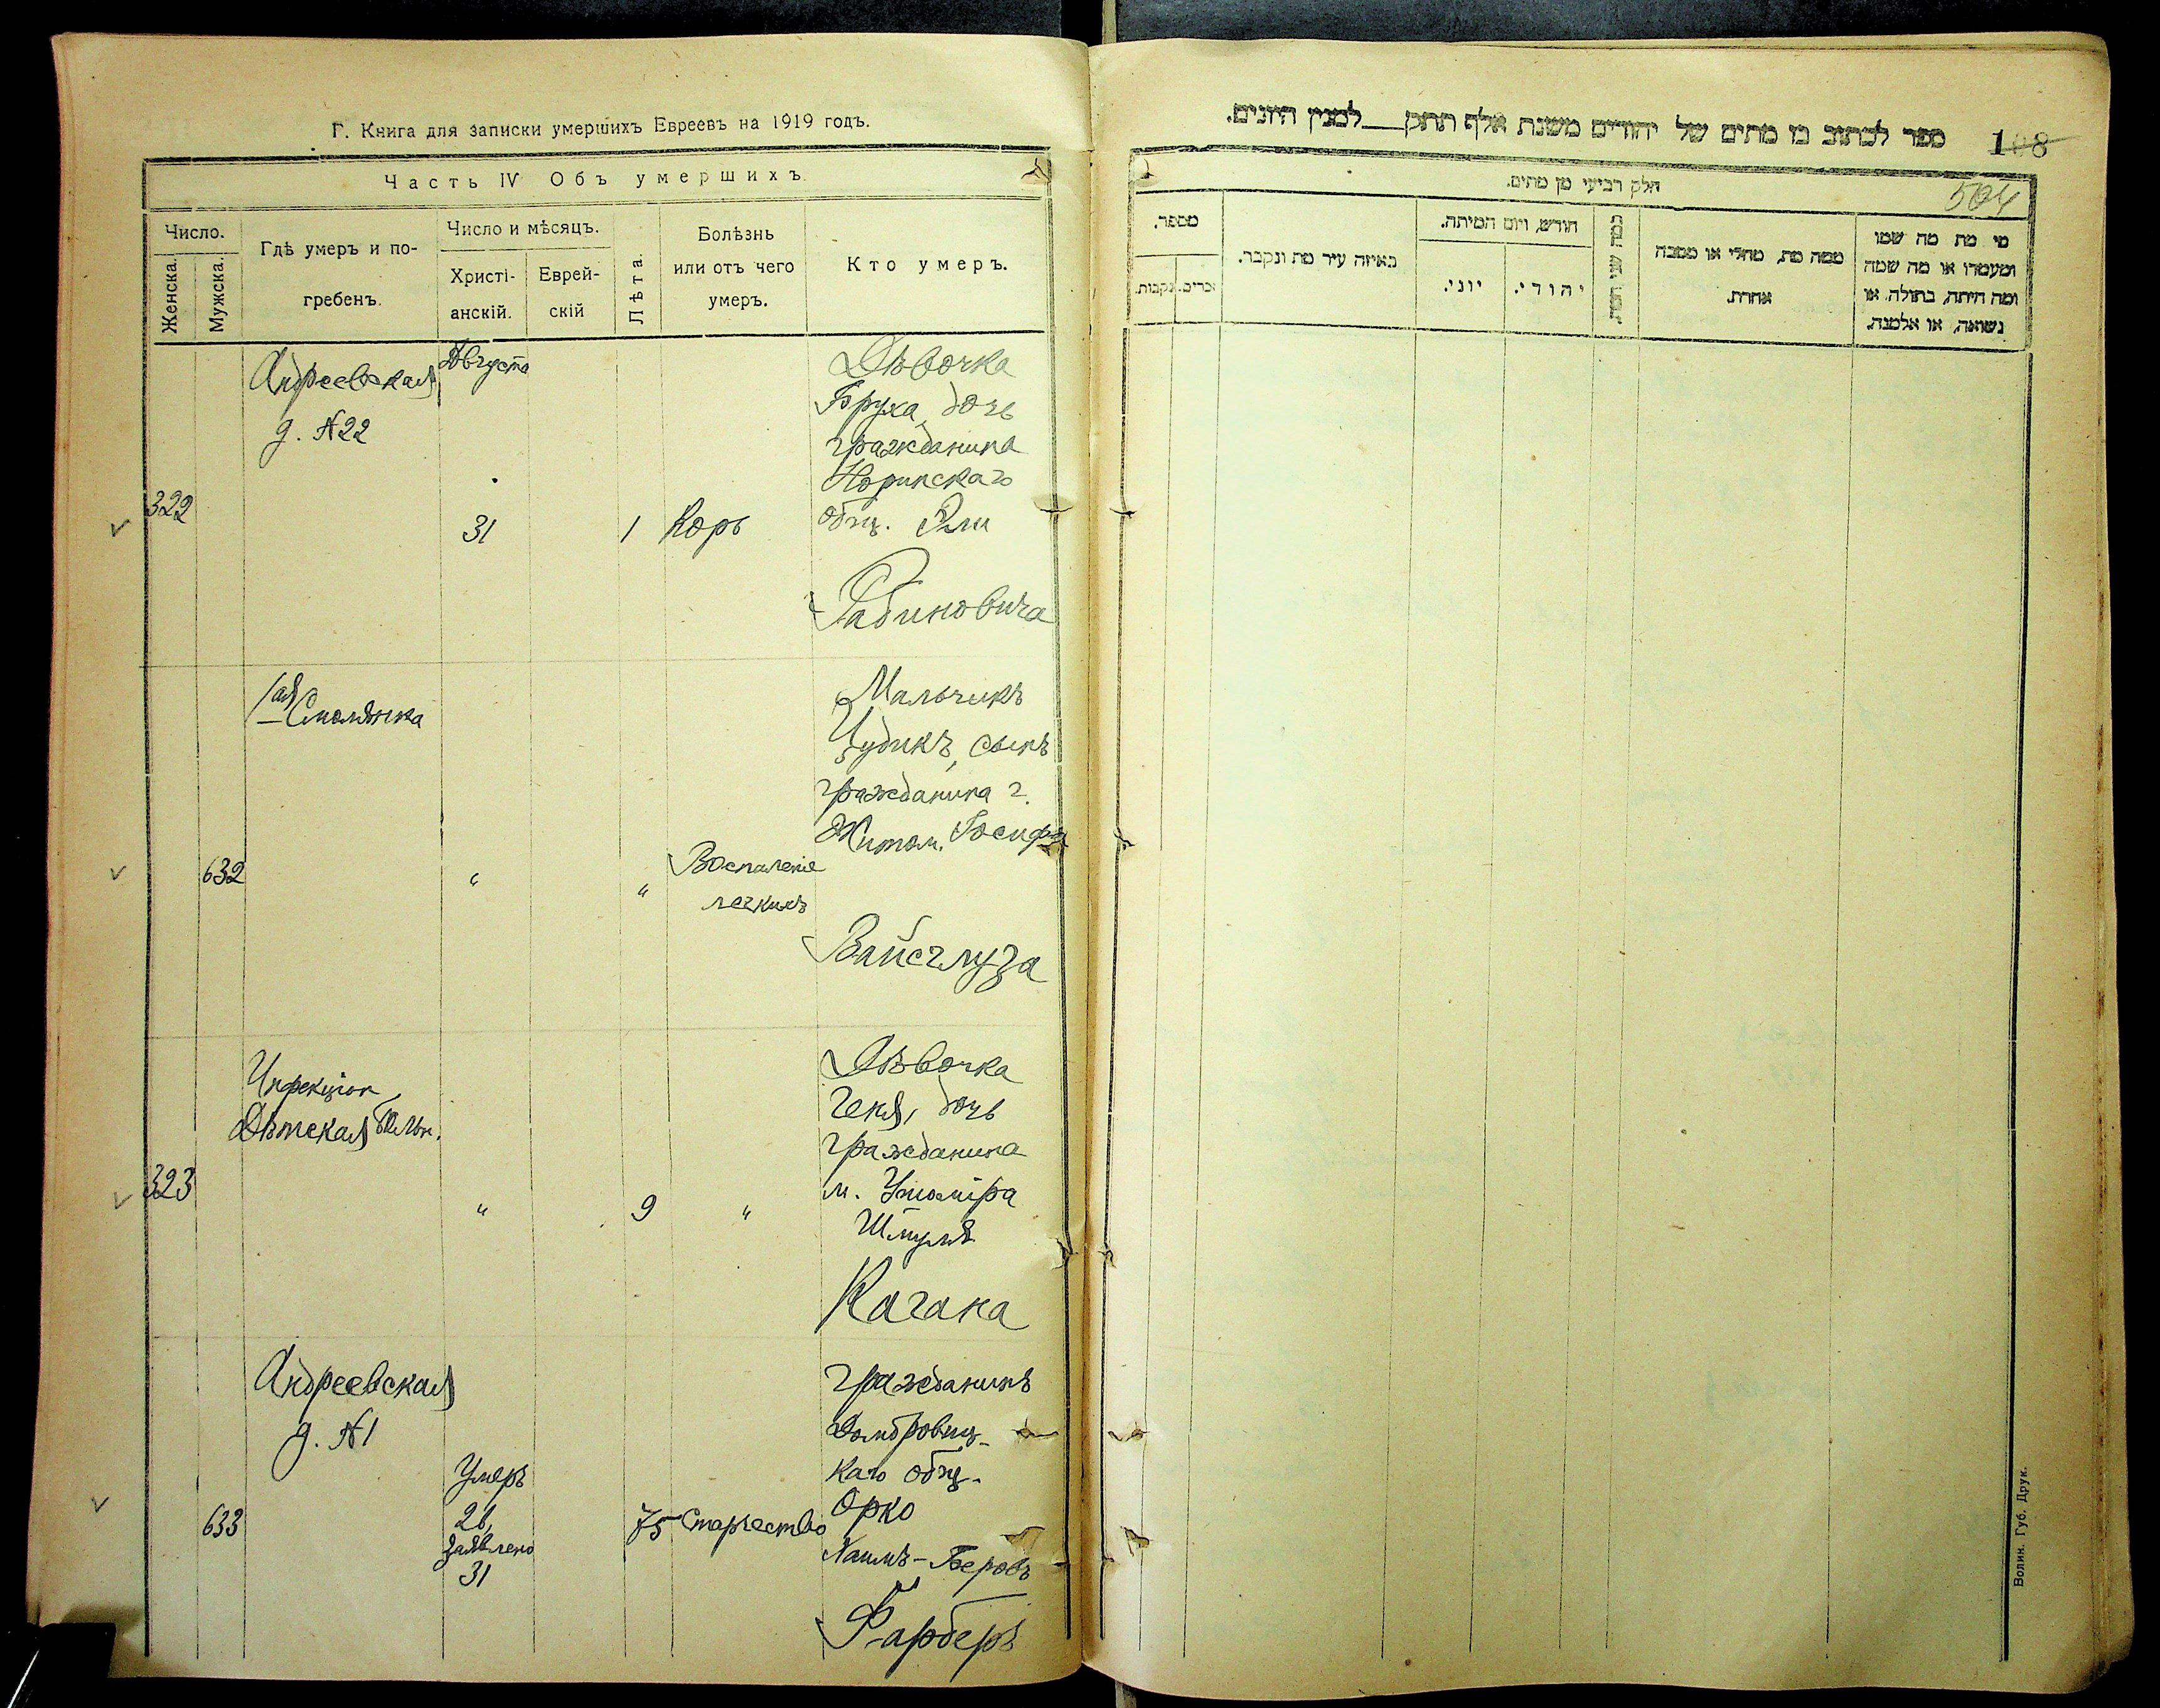 Г. Книга для записки умершихъ Евреевъ на 1919 годъ.
Часть IV Объ умершихъ.
Число.
Женска.
Мужска.
Гдѣ умеръ и по-
гребенъ.
Число и мѣсяцъ.
Христі-
анскій.
Еврей-
скій
Лѣта.
Болѣзнь
или отъ чего
умеръ.
Кто умеръ.
322
Андреевская
д. №22
Августа
31
1
Корь
Дѣвочка
Бруха, дочь
гражданина
Норинскаго
общ.
Рабиновича
632
Смолянка
"
"
Воспаленіе
легкихъ
Мальчикъ
сынъ
гражданина г.
Житом. Іосифа
Вайсглуза
323
Инфекціон
Дѣтская больн.
"
9
"
Дѣвочка
Геня, дочь
гражданина
м. Ушомира
Шмуля
Кагана
633
Андреевская
д. №1
Умеръ
заявлено
31
75
Старчество
гражданинъ
Домбровиц-
каго общ.
Хаимъ-Беровъ
Фарберъ
ספר לכתוב בו מתים של יהודים משנת אלף תתק למנין היונים.
108
504
חלק רביעי מן מתים.
מספר.
נקבות.
זכרים.
באיזה עיר מת ונקבר.
חודש, ויום המיתה.
יוני.
יהודי.
ממה מת, מחלי או מסבה
אחרת.
מי מת מה שמו
ומעמדו או מה שמה
ומה היתה, בתולה או
נשואה, או אלמנה.
Волин. Губ. Друк.